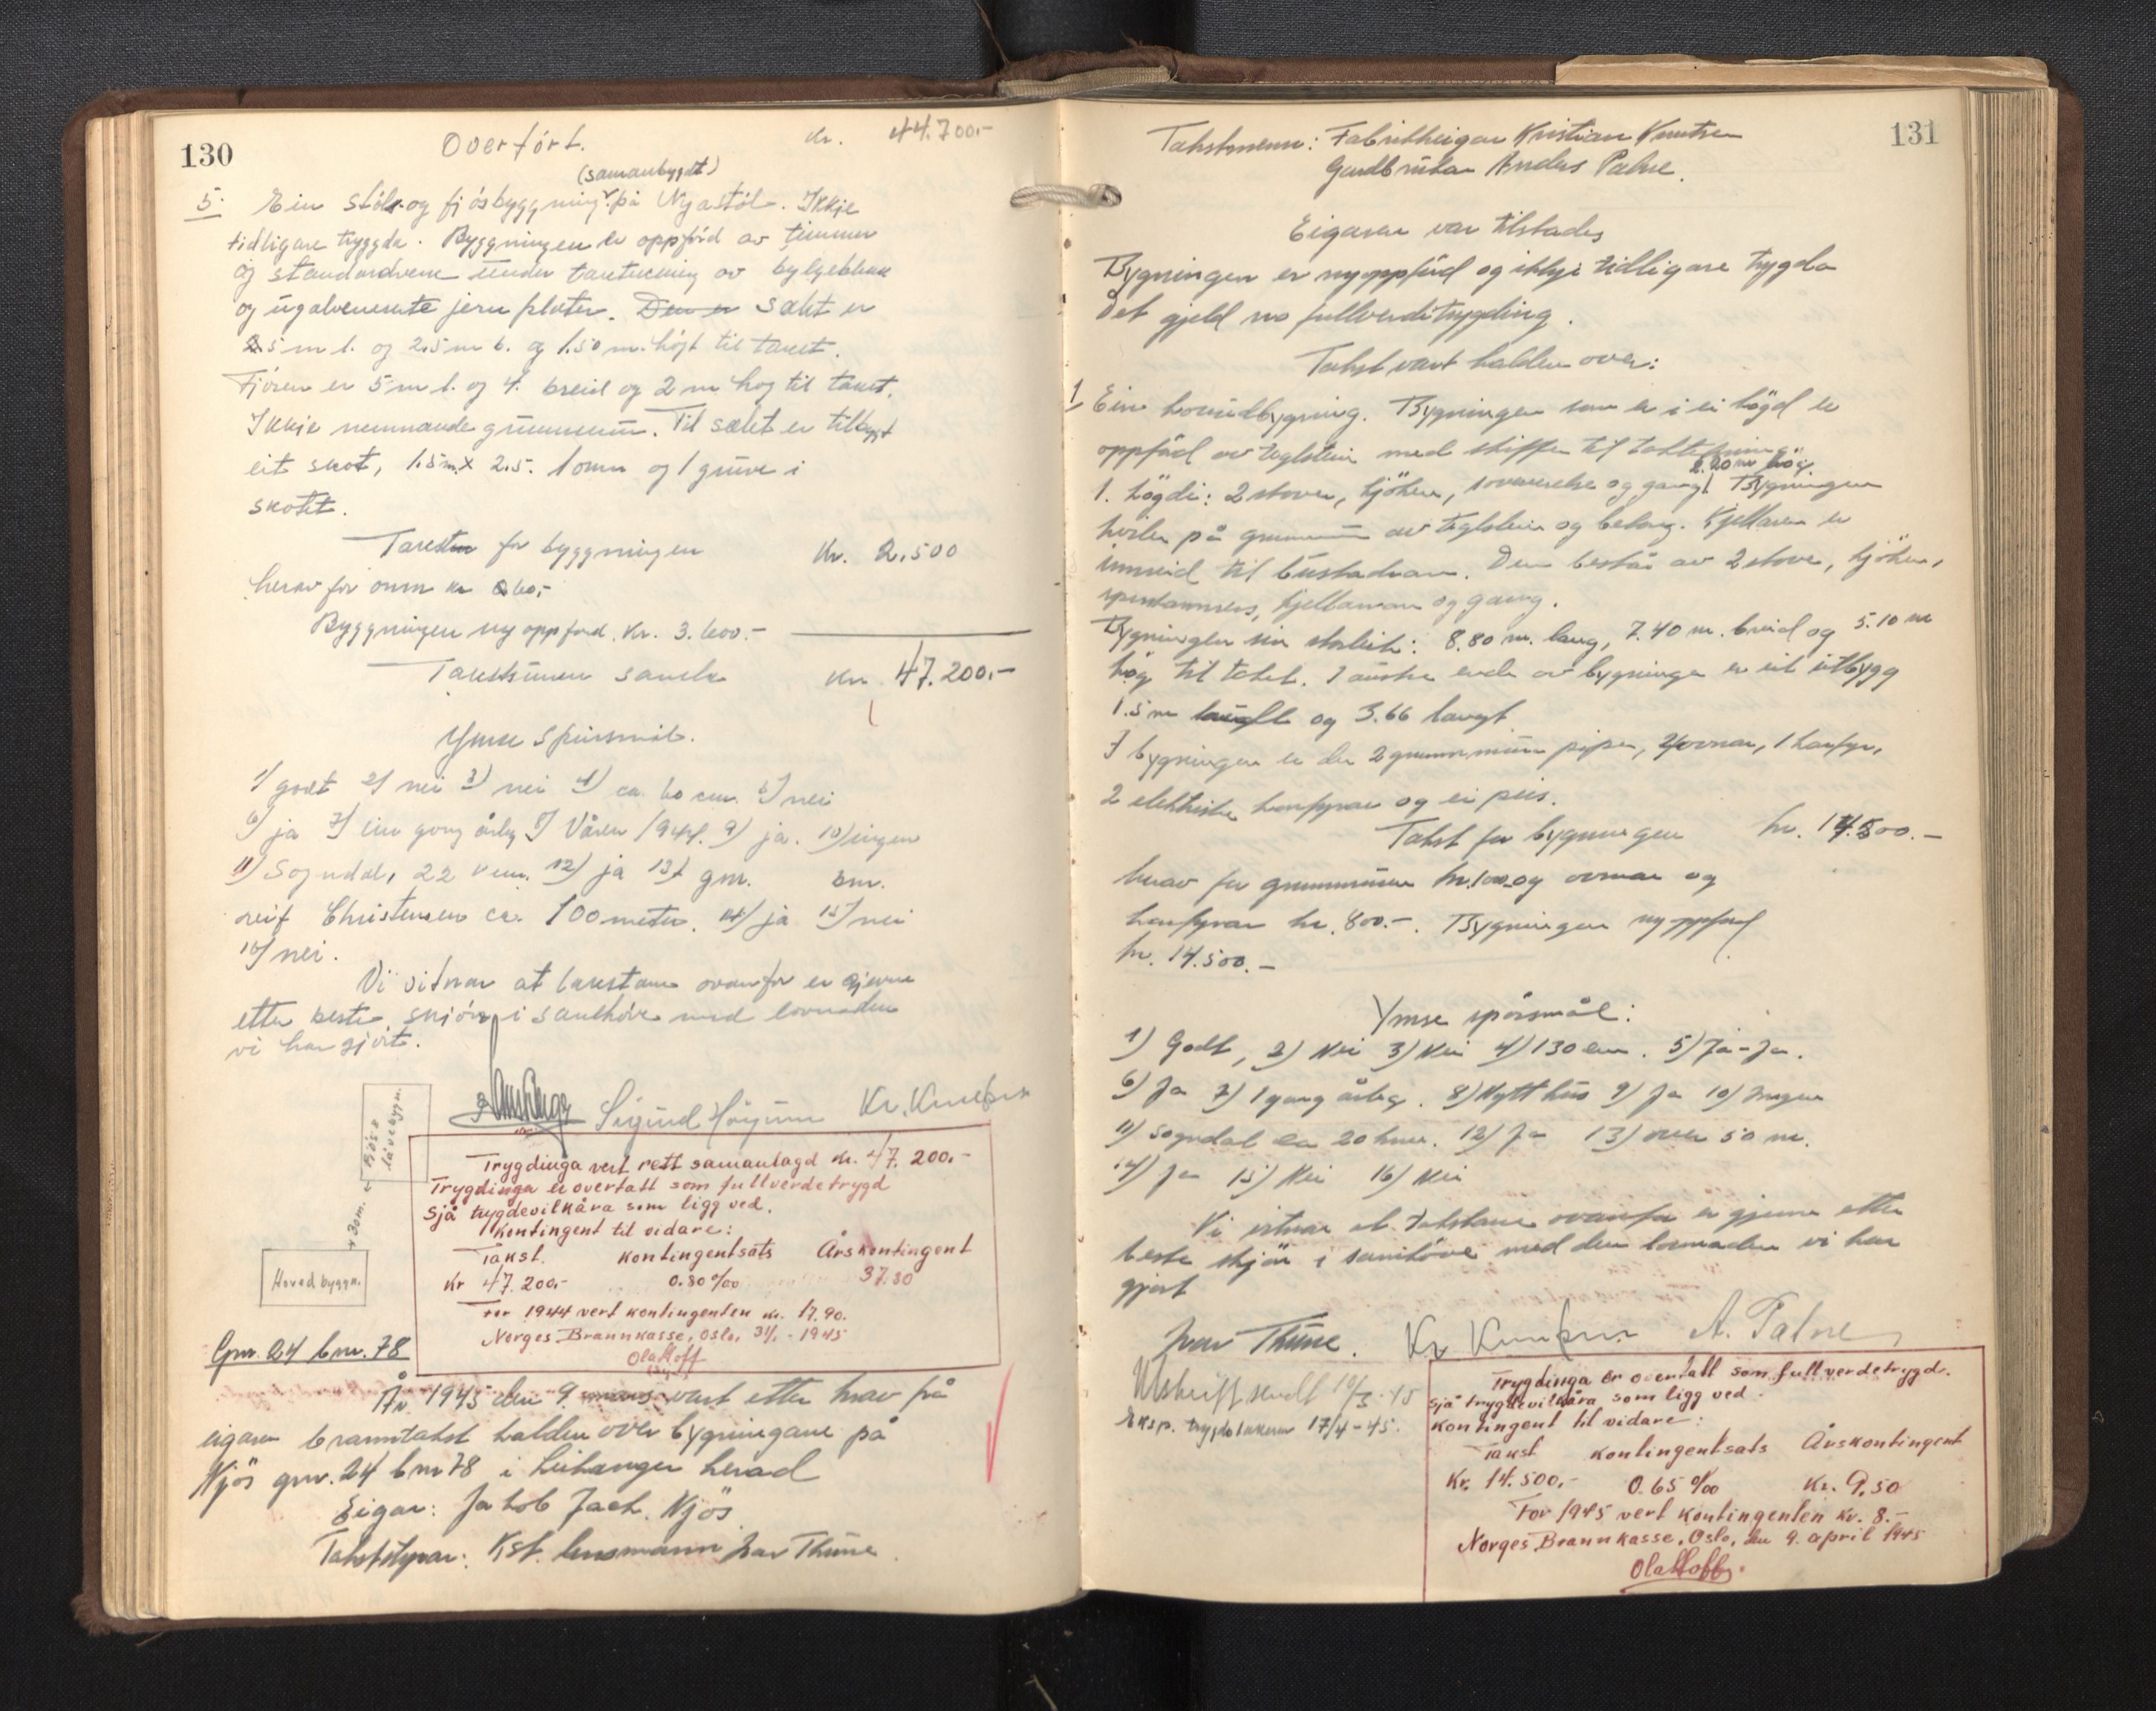 130
Overført. kr. 44.700.-
(samanbygdt)
5. Ein støls og fjøsbyggning på Njøastøl. Ikkje
tidligare tryggda. Byggningen er oppførd av timmer
og standardverk under taktekning av bylgeblikk
og ugalveniserte jern plater. Den er Sælet er
5 m l. og 2.5 m b. og 1.50 m. høgt til taket.
Fjøsen er 5 m l. og 4. breid og 2 m høg til taket.
Ikkje nemnande grunnmur. Til sælet er tilbygt
eit skot, 1.5 m x 2.5. 1 omn og 1 gruve i
skotet.
Taksten for byggningen kr. 2.500
herav for omn kr 60,-
Byggningen ny oppførd. kr. 3.600.-
Takstsummen samla kr 47.200.-
Ymse Spursmål.
1) godt 2) nei 3) nei 4) ca. 60 cm. 5) nei
6) ja 7) ein gong årleg 8) Våren 1944. 9) ja. 10) ingen
11) Sogndal, 22 km. 12) ja 13) gnr. bnr.
Christensen ca. 100 meter. 14) ja 15) nei
16) nei.
Vi vitnar at takstane ovanfor er gjevne
etter beste skjøn i samhøve med lovnaden
vi har gjort.
Sigurd Høyum Kr. Knutsen
Fjøs o låvebyggn.
30 m.
Hoved byggn.
Trygdinga vert rett samanlagd kr. 47.200.-
Trygdinga er overtatt som fullverdetrygd
sjå trygdevilkåra som ligg ved.
Kontingent til vidare:
Takst. Kontingentsats Årskontingent
Kr 47.200.- 0.80 ‰ 37.80
For 1944 vert kontingenten kr. 17.90.
Norges Brannkasse, Oslo, 31/1 - 1945
Ola Hoff
Gnr. 24 bnr. 78
År 1945 den 9. mars vart etter krav frå
eigaren branntakst halden over bygningane på
Njøs gnr. 24 bnr 78 i Leikanger herad
Eigar: Jakob Jach. Njøs
Takststyrar: Kst. lensmann Ivar Thune.
131
Takstmenn: Fabrikkeigar Kristian Knutsen
Gardbrukar Anders Palne.
Eigaren var tilstades
Bygningen er nyoppførd og ikkje tidligare trygda
Det gjeld no fullverditrygding.
Takst vart halden over:
1 Ein hovudbygning. Bygningen som er i ei høgd er
oppførd av teglstein med skiffer til taktekning.
2.20 m høg.
1. høgdi: 2 stover, kjøken, soveværelse og gang. Bygningen
kviler på grunnmur av teglstein og betong. Kjellaren er
innreid til bustadrom. Den består av 2 stove, kjøken,
spiskammers, kjellarrom og gang.
Bygningen sin storleik: 8.80 m. lang, 7.40 m. breid og 5.10 m
høg til taket. I austre ende av bygningen er eit utbygg
1.5 m og 3.66 langt
I bygningen er der 2 grunnmura piper, 2 ovnar, 1 komfyr,
2 elektriske komfyrar og ei peis.
Takst for bygningen kr. 14.500.-
herav for grunnmuren kr. 1000 og ovnar og
komfyrar kr. 800.-. Bygningen nyoppførd
kr. 14.500.-
Ymse spörsmål:
1) Godt, 2) Nei 3) Nei 4) 130 cm. 5) Ja - Ja.
6) Ja 7) 1 gang årleg. 8) Nytt hus 9) Ja 10) Ingen
11) Sogndal ca 20 km. 12) Ja 13) over 50 m.
14) Ja 15) Nei 16) Nei
Vi vitnar at takstane ovanfor er gjevne etter
beste skjøn i samhøve med den lovnaden vi har
gjort
Ivar Thune. Kr Knutsen A. Palne
Utskrift sendt 10/3-45
Eksp. trygdetakaren 17/4-45.
Trygdinga er overtatt som fullverdetrygd.
sjå trygdevilkåra som ligg ved.
Kontingent til vidare:
Takst Kontingentsats Årskontingent
Kr. 14.500,- 0.65 ‰ Kr. 9,50
For 1945 vert kontingenten kr. 8.-
Norges Brannkasse, Oslo, den 9. april 1945
Ola Hoff